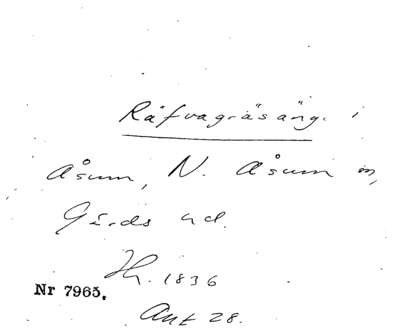 Råfvagräsäng. i
Åsum, N. Åsum sn,
Gärds hd.
Hr. 1836
Nr 7965.
Akt 28.